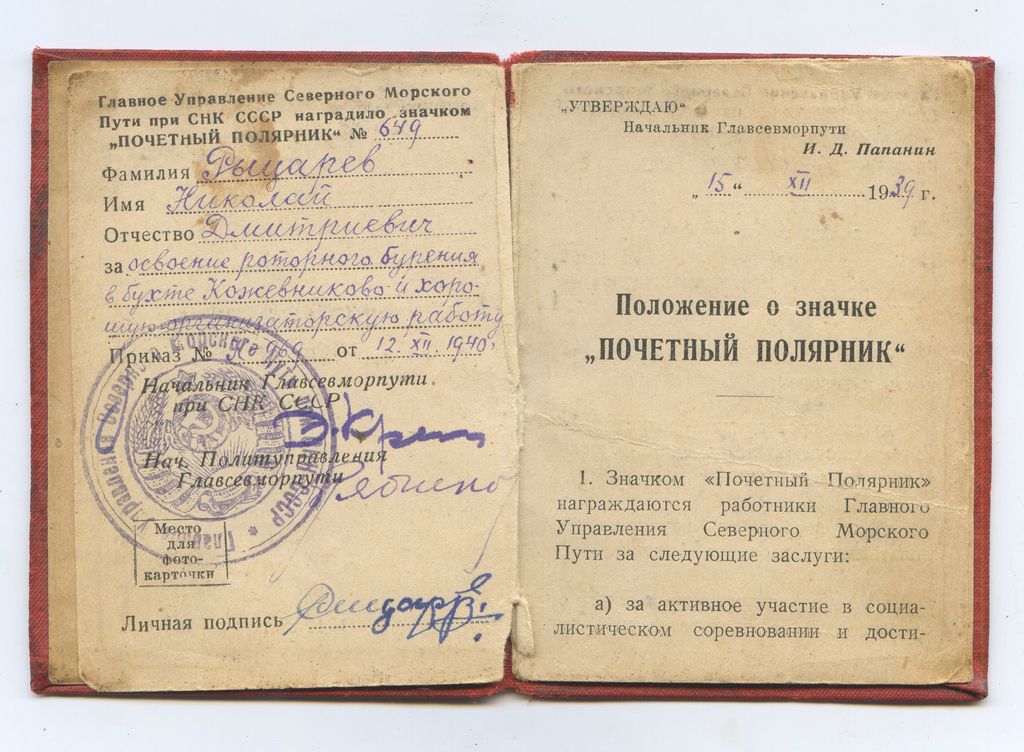 Главное Управление Северного Морского
Пути при СНК СССР наградило значком
„ПОЧЕТНЫЙ ПОЛЯРНИК“ № 649
Фамилия Рыцарев
Имя Николай
Отчество Дмитриевич
за освоение роторного бурения
в бухте Кожевниково и хоро-
шую организаторскую работу
Приказ № 969 от 12. XII. 1940г
Начальник Главсевморпути
при СНК СССР
Нач. Политуправления
Главсевморпути
Место
для
фото-
карточки
Личная подпись
„УТВЕРЖДАЮ“
Начальник Главсевморпути
И. Д. Папанин
„ 15 “ XII 1939 г.
Положение о значке
„ПОЧЕТНЫЙ ПОЛЯРНИК“
1. Значком «Почетный Полярник»
награждаются работники Главного
Управления Северного Морского
Пути за следующие заслуги:
а) за активное участие в социа-
листическом соревновании и дости-